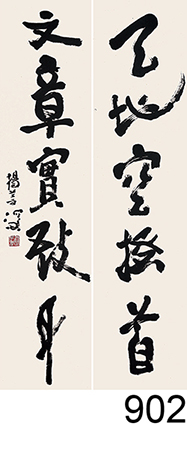 天地空搔首
文章實致身
楊善深
902